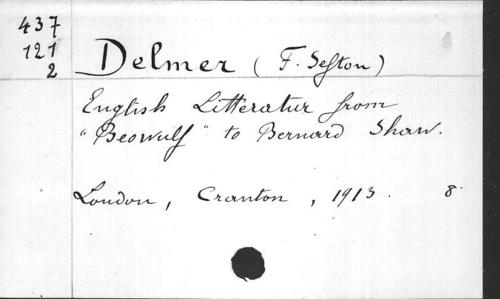 437
121
2
Delmer (F. Sefton)
English Litteratur from
"Beowulf" to Bernard Shaw.
London, Cranton, 1913. 8.